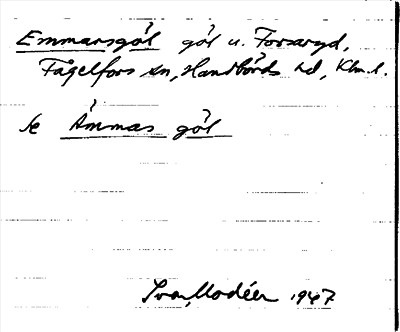 Emmarsgöl göl u. Forsaryd,
Fågelfors sn, Handbörds hd, Klm. l.
se Ämmas göl
Ivar Modéer 1947